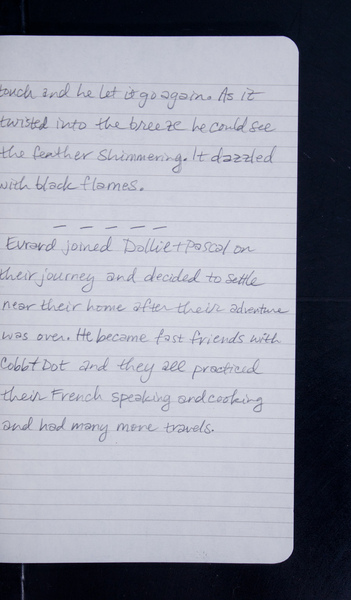 touch and he let it go again. As it
twisted into the breeze he could see
the feather shimmering. It dazzled
with black flames.
– – – – –
Evrard joined Dollie + Pascal on
their journey and decided to settle
near their home after their adventure
was over. He became fast friends with
Cobb + Dot and they all practiced
their French speaking and cooking
and had many more travels.